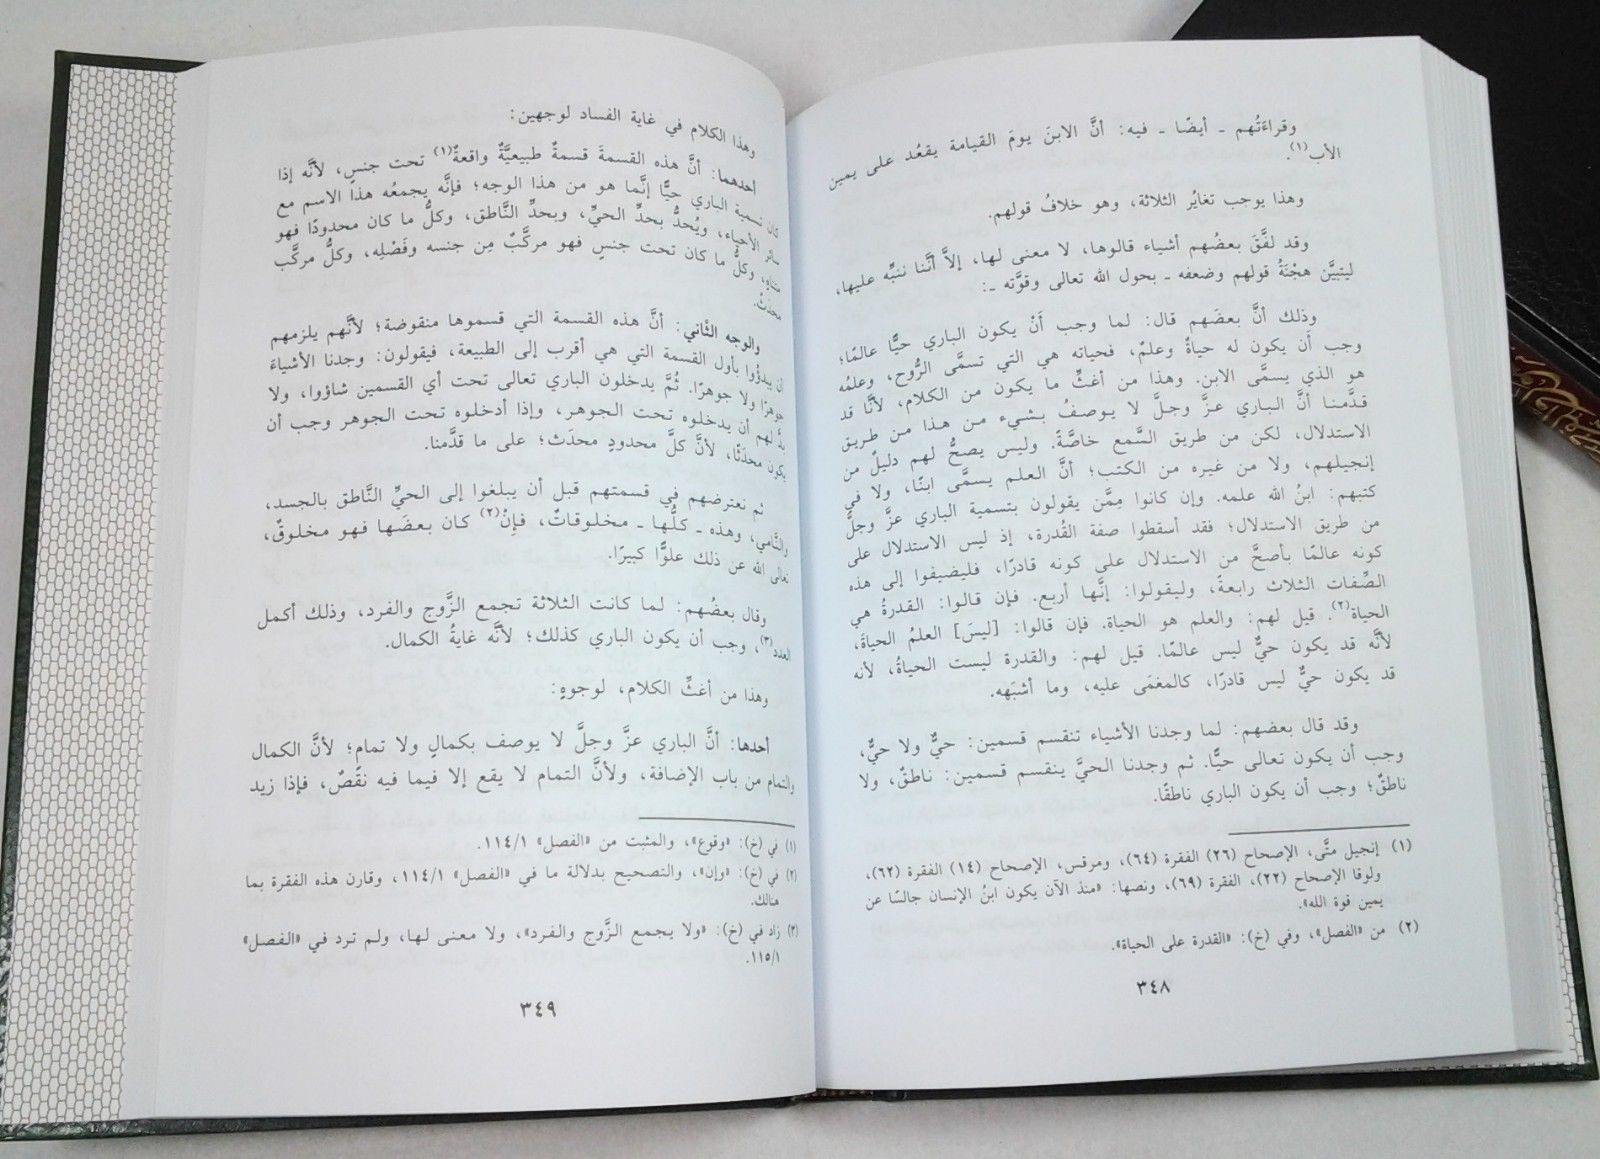 وقراءَتُهم ـ أيضًا ـ فيه: أنَّ الابنَ يومَ القيامة يقعُد على يمين
الأب(١).
وهذا يوجب تغايُر الثلاثة، وهو خلافُ قولهم.
وقد لفَّقَ بعضُهم أشياء قالوها، لا معنى لها، إلاَّ أنَّنا ننبِّه عليها،
ليتبيَّن هجْنَةُ قولهم وضعفه ـ بحول الله تعالى وقوَّته ـ:
وذلك أنَّ بعضَهم قال: لما وجب أَنْ يكون الباري حيًّا عالمًا؛
وجب أَن يكون له حياةٌ وعلمٌ، فحياته هي التي تسمَّى الرُّوح، وعلمُه
هو الذي يسمَّى الابن. وهذا من أغثِّ ما يكون من الكلام، لأنَّا قد
قدَّمنـا أنَّ البـاري عـزَّ وجـلَّ لا يـوصـفُ بـشيء مـن هـذا مـن طريـق
الاستدلال، لكن من طريق السَّمع خاصَّةً. وليس يصحُّ لهم دليلٌ من
إنجيلهم، ولا من غيره من الكتب؛ أنَّ العلم يسمَّى ابنًا، ولا في
كتبهم: ابنُ الله علمه. وإن كانوا مِمَّن يقولون بتسمية الباري عزَّ وجلَّ
من طريق الاستدلال؛ فقد أسقطوا صفة القُدرة، إذ ليس الاستدلال على
كونه عالمًا بأصحَّ من الاستدلال على كونه قادرًا، فليضيفوا إلى هذه
الصِّفات الثلاث رابعةً، وليقولوا: إنَّها أربع. فإن قالوا: القدرةُ هي
الحياة(٢). قيل لهم: والعلم هو الحياة. فإن قالوا: [ليسَ] العلمُ الحياةَ،
لأنَّه قد يكون حيٌّ ليس عالمًا. قيل لهم: والقدرة ليست الحياةُ، لأنه
قد يكون حيٌّ ليس قادرًا، كالمغمَى عليه، وما أشبَهه.
وقد قال بعضهم: لما وجدنا الأشياء تنقسم قسمين: حيٌّ ولا حيٌّ،
وجب أن يكون تعالى حيًّا. ثم وجدنا الحيَّ ينقسم قسمين: ناطقٌ، ولا
ناطقٌ؛ وجب أن يكون الباري ناطقًا.
(١) إنجيل متَّى، الإصحاح (٢٦) الفقرة (٦٤)، ومرقس، الإصحاح (١٤) الفقرة (٦٢)،
ولوقا الإصحاح (٢٢)، الفقرة (٦٩)، ونصها: «منذ الآن يكون ابنُ الإنسان جالسًا عن
يمين قوة الله».
(٢) من «الفصل»، وفي (خ): «القدرة على الحياة».
٣٤٨
وهذا الكلام في غاية الفساد لوجهين:
أحدهما: أنَّ هذه القسمةَ قسمةٌ طبيعيَّةٌ واقعةٌ(١) تحت جنسٍ، لأنَّه إذا
كان تسمية الباري حيًّا إنَّما هو من هذا الوجه؛ فإنَّه يجمعُه هذا الاسم مع
سائر الأحياء، ويُحدُّ بحدِّ الحيِّ، وبحدِّ النَّاطق، وكلُّ ما كان محدودًا فهو
متناهٍ، وكلُّ ما كان تحت جنسٍ فهو مركَّبٌ مِن جنسه وفَصْلِه، وكلُّ مركَّب
محدَثٌ.
والوجه الثاني: أنَّ هذه القسمة التي قسموها منقوضة؛ لأنَّهم يلزمهم
أن يبدؤُوا بأول القسمة التي هي أقرب إلى الطبيعة، فيقولون: وجدنا الأشياءَ
جوهرًا ولا جوهرًا. ثُمَّ يدخلون الباري تعالى تحت أي القسمين شاؤوا، ولا
بدَّ لهم أن يدخلوه تحت الجوهر، وإذا أدخلوه تحت الجوهر وجب أن
يكون محدَثًا، لأنَّ كلَّ محدودٍ محدَث؛ على ما قدَّمنا.
ثم نعترضهم في قسمتهم قبل أن يبلغوا إلى الحيِّ النَّاطق بالجسد،
والنَّامي، وهذه ـ كلُّها ـ مخلوقاتٌ، فإِنْ(٢) كان بعضَها فهو مخلوقٌ،
تعالى الله عن ذلك علوًّا كبيرًا.
وقال بعضُهم: لما كانت الثلاثة تجمع الزَّوج والفرد، وذلك أكمل
العدد(٣)، وجب أن يكون الباري كذلك؛ لأنَّه غايةُ الكمال.
وهذا من أغثِّ الكلام، لوجوهٍ:
أحدها: أنَّ الباري عزَّ وجلَّ لا يوصف بكمالٍ ولا تمام؛ لأنَّ الكمال
والتمام من باب الإضافة، ولأنَّ التمام لا يقع إلا فيما فيه نقْصٌ، فإذا زيد
(١) في (خ): «وقوع»، والمثبت من «الفصل» ١١٤/١.
(٢) في (خ): «وإن»، والتصحيح بدلالة ما في «الفصل» ١١٤/١، وقارن هذه الفقرة بما
هنالك.
(٣) زاد في (خ): «ولا يجمع الزَّوج والفرد»، ولا معنى لها، ولم ترد في «الفصل»
١١٥/١.
٣٤٩